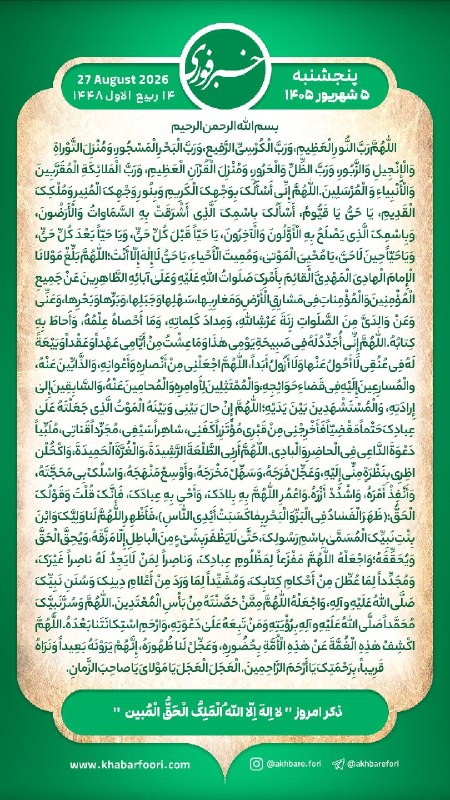 خبرفوری
پنجشنبه
۵ شهریور ۱۴۰۵
27 August 2026
۱۴ ربیع الاول ۱۴۴۸
بسم الله الرحمن الرحیم
اللَّهُمَّ رَبَّ النُّورِ الْعَظِیمِ، وَرَبَّ الْکُرْسِیِّ الرَّفِیعِ، وَرَبَّ الْبَحْرِ الْمَسْجُورِ، وَمُنْزِلَ التَّوْراةِ
وَالْإِنْجِیلِ وَالزَّبُورِ، وَرَبَّ الظِّلِّ وَالْحَرُورِ، وَمُنْزِلَ الْقُرْآنِ الْعَظِیمِ، وَرَبَّ الْمَلائِکَةِ الْمُقَرَّبِینَ
وَالْأَنْبِیاءِ وَ الْمُرْسَلِینَ. اللّٰهُمَّ إِنِّی أَسْأَلُکَ بِوَجْهِکَ الْکَرِیمِ وَبِنُورِ وَجْهِکَ الْمُنِیرِ وَمُلْکِکَ
الْقَدِیمِ، یَا حَیُّ یَا قَیُّومُ، أَسْأَلُکَ بِاسْمِکَ الَّذِی أَشْرَقَتْ بِهِ السَّماواتُ وَالْأَرَضُونَ،
وَبِاسْمِکَ الَّذِی یَصْلَحُ بِهِ الْأَوَّلُونَ وَالْآخِرُونَ، یَا حَیّاً قَبْلَ کُلِّ حَیٍّ، وَیَا حَیّاً بَعْدَ کُلِّ حَیٍّ،
وَیَا حَیّاً حِینَ لَا حَیَّ، یَا مُحْیِیَ الْمَوْتىٰ، وَمُمِیتَ الْأَحْیاءِ، یَا حَیُّ لَاإِلٰهَ إِلّا أَنْتَ؛ اللّٰهُمَّ بَلِّغْ مَوْلانَا
الْإِمامَ الْهادِیَ الْمَهْدِیَّ الْقائِمَ بِأَمْرِکَ صَلَواتُ اللّٰهِ عَلَیْهِ وَعَلَىٰ آبائِهِ الطَّاهِرِینَ عَنْ جَمِیعِ
الْمُؤْمِنِینَ وَالْمُؤْمِناتِ فِی مَشارِقِ الْأَرْضِ وَمَغارِبِها، سَهْلِها وَجَبَلِها، وَبَرِّها وَبَحْرِها، وَعَنِّی
وَعَنْ وَالِدَیَّ مِنَ الصَّلَواتِ زِنَةَ عَرْشِ اللّٰهِ، وَمِدادَ کَلِماتِهِ، وَمَا أَحْصاهُ عِلْمُهُ، وَأَحاطَ بِهِ
کِتابُهُ. اللّٰهُمَّ إِنِّی أُجَدِّدُ لَهُ فِی صَبِیحَةِ یَوْمِی هٰذَا وَمَا عِشْتُ مِنْ أَیَّامِی عَهْداً وَعَقْداً وَبَیْعَةً
لَهُ فِی عُنُقِی لَا أَحُولُ عَنْها وَلَا أَزُولُ أَبَداً، اللّٰهُمَّ اجْعَلْنِی مِنْ أَنْصارِهِ وَأَعْوانِهِ، وَالذَّابِّینَ عَنْهُ،
وَالْمُسارِعِینَ إِلَیْهِ فِی قَضاءِ حَوَائِجِهِ، وَالْمُمْتَثِلِینَ لِأَوامِرِهِ وَالْمُحامِینَ عَنْهُ، وَالسَّابِقِینَ إِلىٰ
إِرادَتِهِ، وَالْمُسْتَشْهَدِینَ بَیْنَ یَدَیْهِ؛ اللّٰهُمَّ إِنْ حالَ بَیْنِی وَبَیْنَهُ الْمَوْتُ الَّذِی جَعَلْتَهُ عَلَىٰ
عِبادِکَ حَتْماً مَقْضِیّاً فَأَخْرِجْنِی مِنْ قَبْرِی مُؤْتَزِراً کَفَنِی، شاهِراً سَیْفِی، مُجَرِّداً قَناتِی، مُلَبِّیاً
دَعْوَةَ الدَّاعِی فِی الْحاضِرِ وَالْبادِی. اللّٰهُمَّ أَرِنِی الطَّلْعَةَ الرَّشِیدَةَ، وَالْغُرَّةَ الْحَمِیدَةَ، وَاکْحُلْ نا
ظِرِی بِنَظْرَةٍ مِنِّی إِلَیْهِ، وَعَجِّلْ فَرَجَهُ، وَسَهِّلْ مَخْرَجَهُ، وَأَوْسِعْ مَنْهَجَهُ، وَاسْلُکْ بِی مَحَجَّتَهُ،
وَأَنْفِذْ أَمْرَهُ، وَاشْدُدْ أَزْرَهُ. وَاعْمُرِ اللّٰهُمَّ بِهِ بِلادَکَ، وَأَحْیِ بِهِ عِبادَکَ، فَإِنَّکَ قُلْتَ وَقَوْلُکَ
الْحَقُّ: (ظَهَرَ الْفَسادُ فِی الْبَرِّ وَالْبَحْرِ بِما کَسَبَتْ أَیْدِی النَّاسِ)، فَأَظْهِرِ اللّٰهُمَّ لَنا وَلِیَّکَ وَابْنَ
بِنْتِ نَبِیِّکَ الْمُسَمَّىٰ بِاسْمِ رَسُولِکَ، حَتَّىٰ لَا یَظْفَرَ بِشَیْءٍ مِنَ الْباطِلِ إِلّا مَزَّقَهُ، وَیُحِقَّ الْحَقَّ
وَیُحَقِّقَهُ؛ وَاجْعَلْهُ اللّٰهُمَّ مَفْزَعاً لِمَظْلُومِ عِبادِکَ، وَناصِراً لِمَنْ لَایَجِدُ لَهُ ناصِراً غَیْرَکَ،
وَمُجَدِّداً لِمَا عُطِّلَ مِنْ أَحْکامِ کِتابِکَ، وَمُشَیِّداً لِمَا وَرَدَ مِنْ أَعْلامِ دِینِکَ وَسُنَنِ نَبِیِّکَ
صَلَّى اللّٰهُ عَلَیْهِ وَآلِهِ، وَاجْعَلْهُ اللّٰهُمَّ مِمَّنْ حَصَّنْتَهُ مِنْ بَأْسِ الْمُعْتَدِینَ. اللّٰهُمَّ وَسُرَّ نَبِیَّکَ
مُحَمَّداً صَلَّى اللّٰهُ عَلَیْهِ وَآلِهِ بِرُؤْیَتِهِ وَمَنْ تَبِعَهُ عَلَىٰ دَعْوَتِهِ، وَارْحَمِ اسْتِکانَتَنا بَعْدَهُ. اللّٰهُمَّ
اکْشِفْ هٰذِهِ الْغُمَّةَ عَنْ هٰذِهِ الْأُمَّةِ بِحُضُورِهِ، وَعَجِّلْ لَنا ظُهُورَهُ، إِنَّهُمْ یَرَوْنَهُ بَعِیداً وَنَراهُ
قَرِیباً، بِرَحْمَتِکَ یَا أَرْحَمَ الرَّاحِمِینَ. الْعَجَلَ الْعَجَلَ یَا مَوْلایَ یَا صاحِبَ الزَّمانِ.
ذکر امروز " لا اِلهَ اِلّا اللهُ الْمَلِکُ الْحَقُّ الْمُبین "
www.khabarfoori.com
@akhbare.fori
@akhbarefori